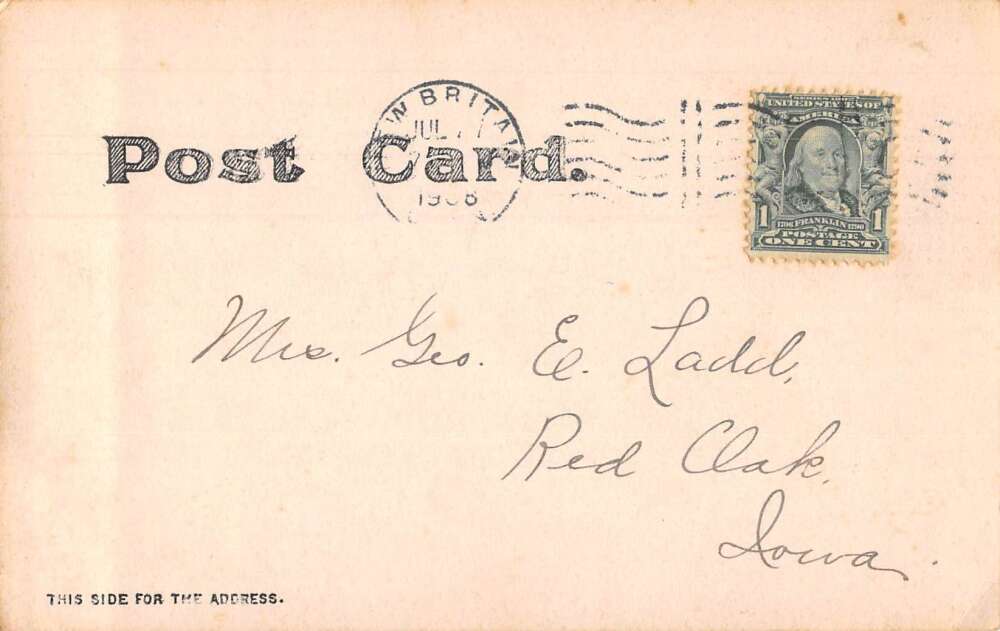 Post Card.
W BRITA
JUL
1908
SERIES
UNITED STATES OF
AMERICA
1 1706 FRANKLIN 1790 1
POSTAGE
ONE CENT
Mrs. Geo. E. Ladd,
Red Oak,
Iowa.
THIS SIDE FOR THE ADDRESS.